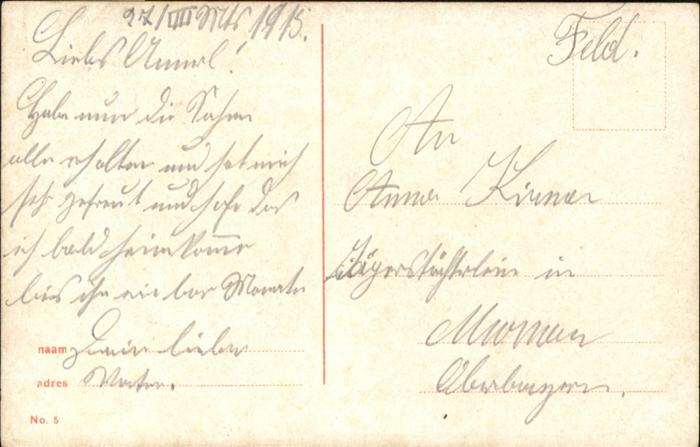 27/VIII 1915.
Liebs Annerl!
Habe nun die Sachen
alle erhalten und hat mich
sehr gefreut und hofe das
ich bald heimkomme
bis in ein bar Monate
naam Dein lieber
adres Vater.
No. 5
Feld.
An
Anna
Jägerstöchterlein in
Murnau
Oberbayern.